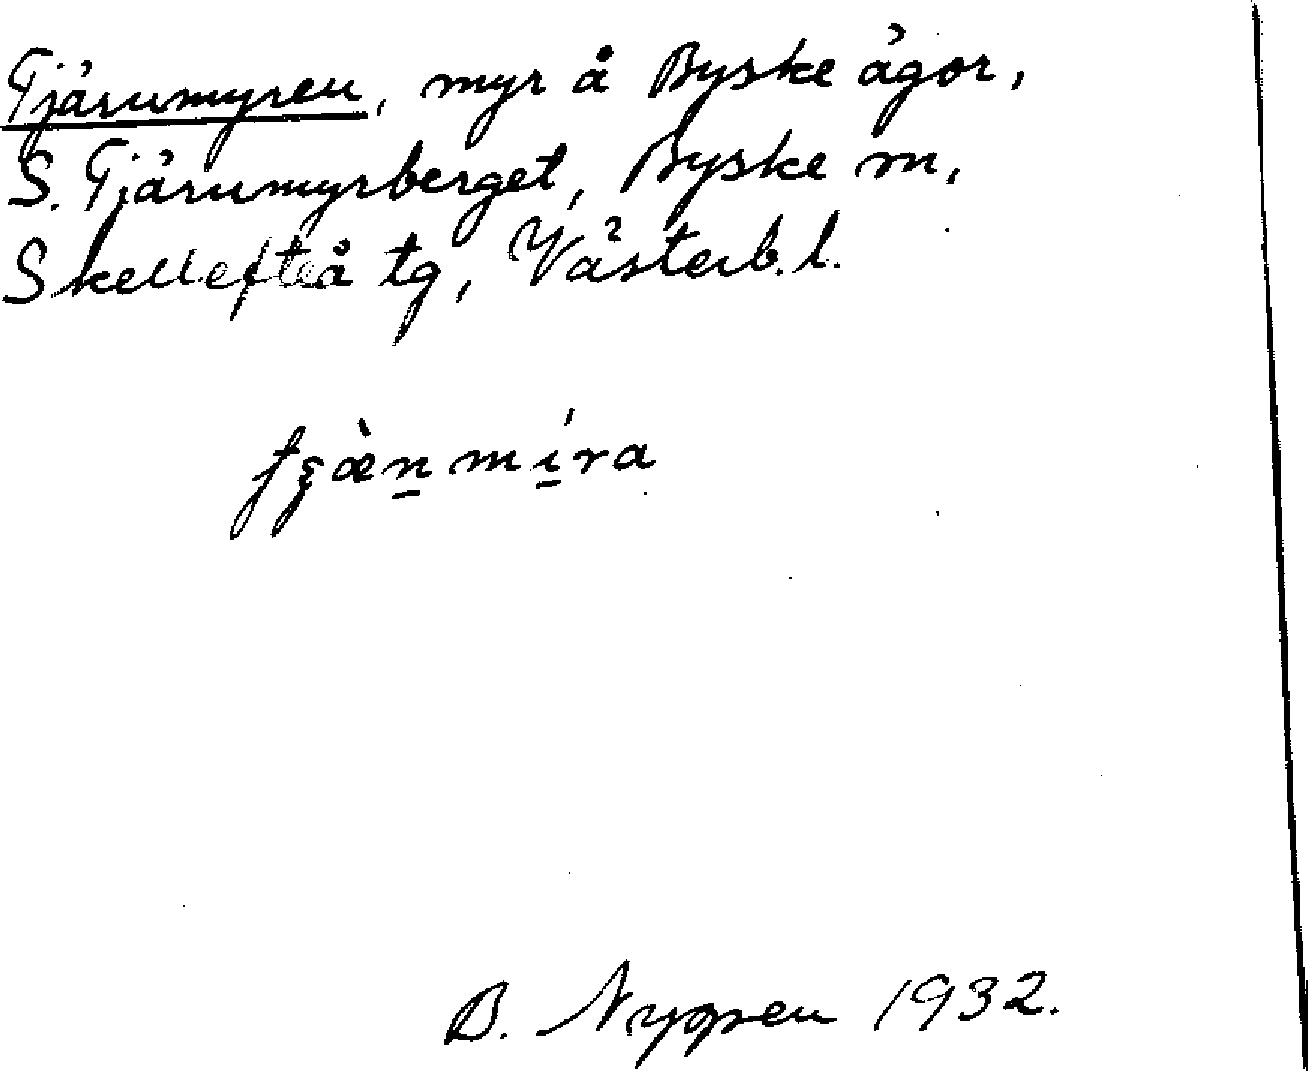 Tjärumyren, myr å Byske ägor,
S. Tjärumyrberget, Byske sn,
Skellefteå tg, Västerb. l.
B. Nygren 1932.